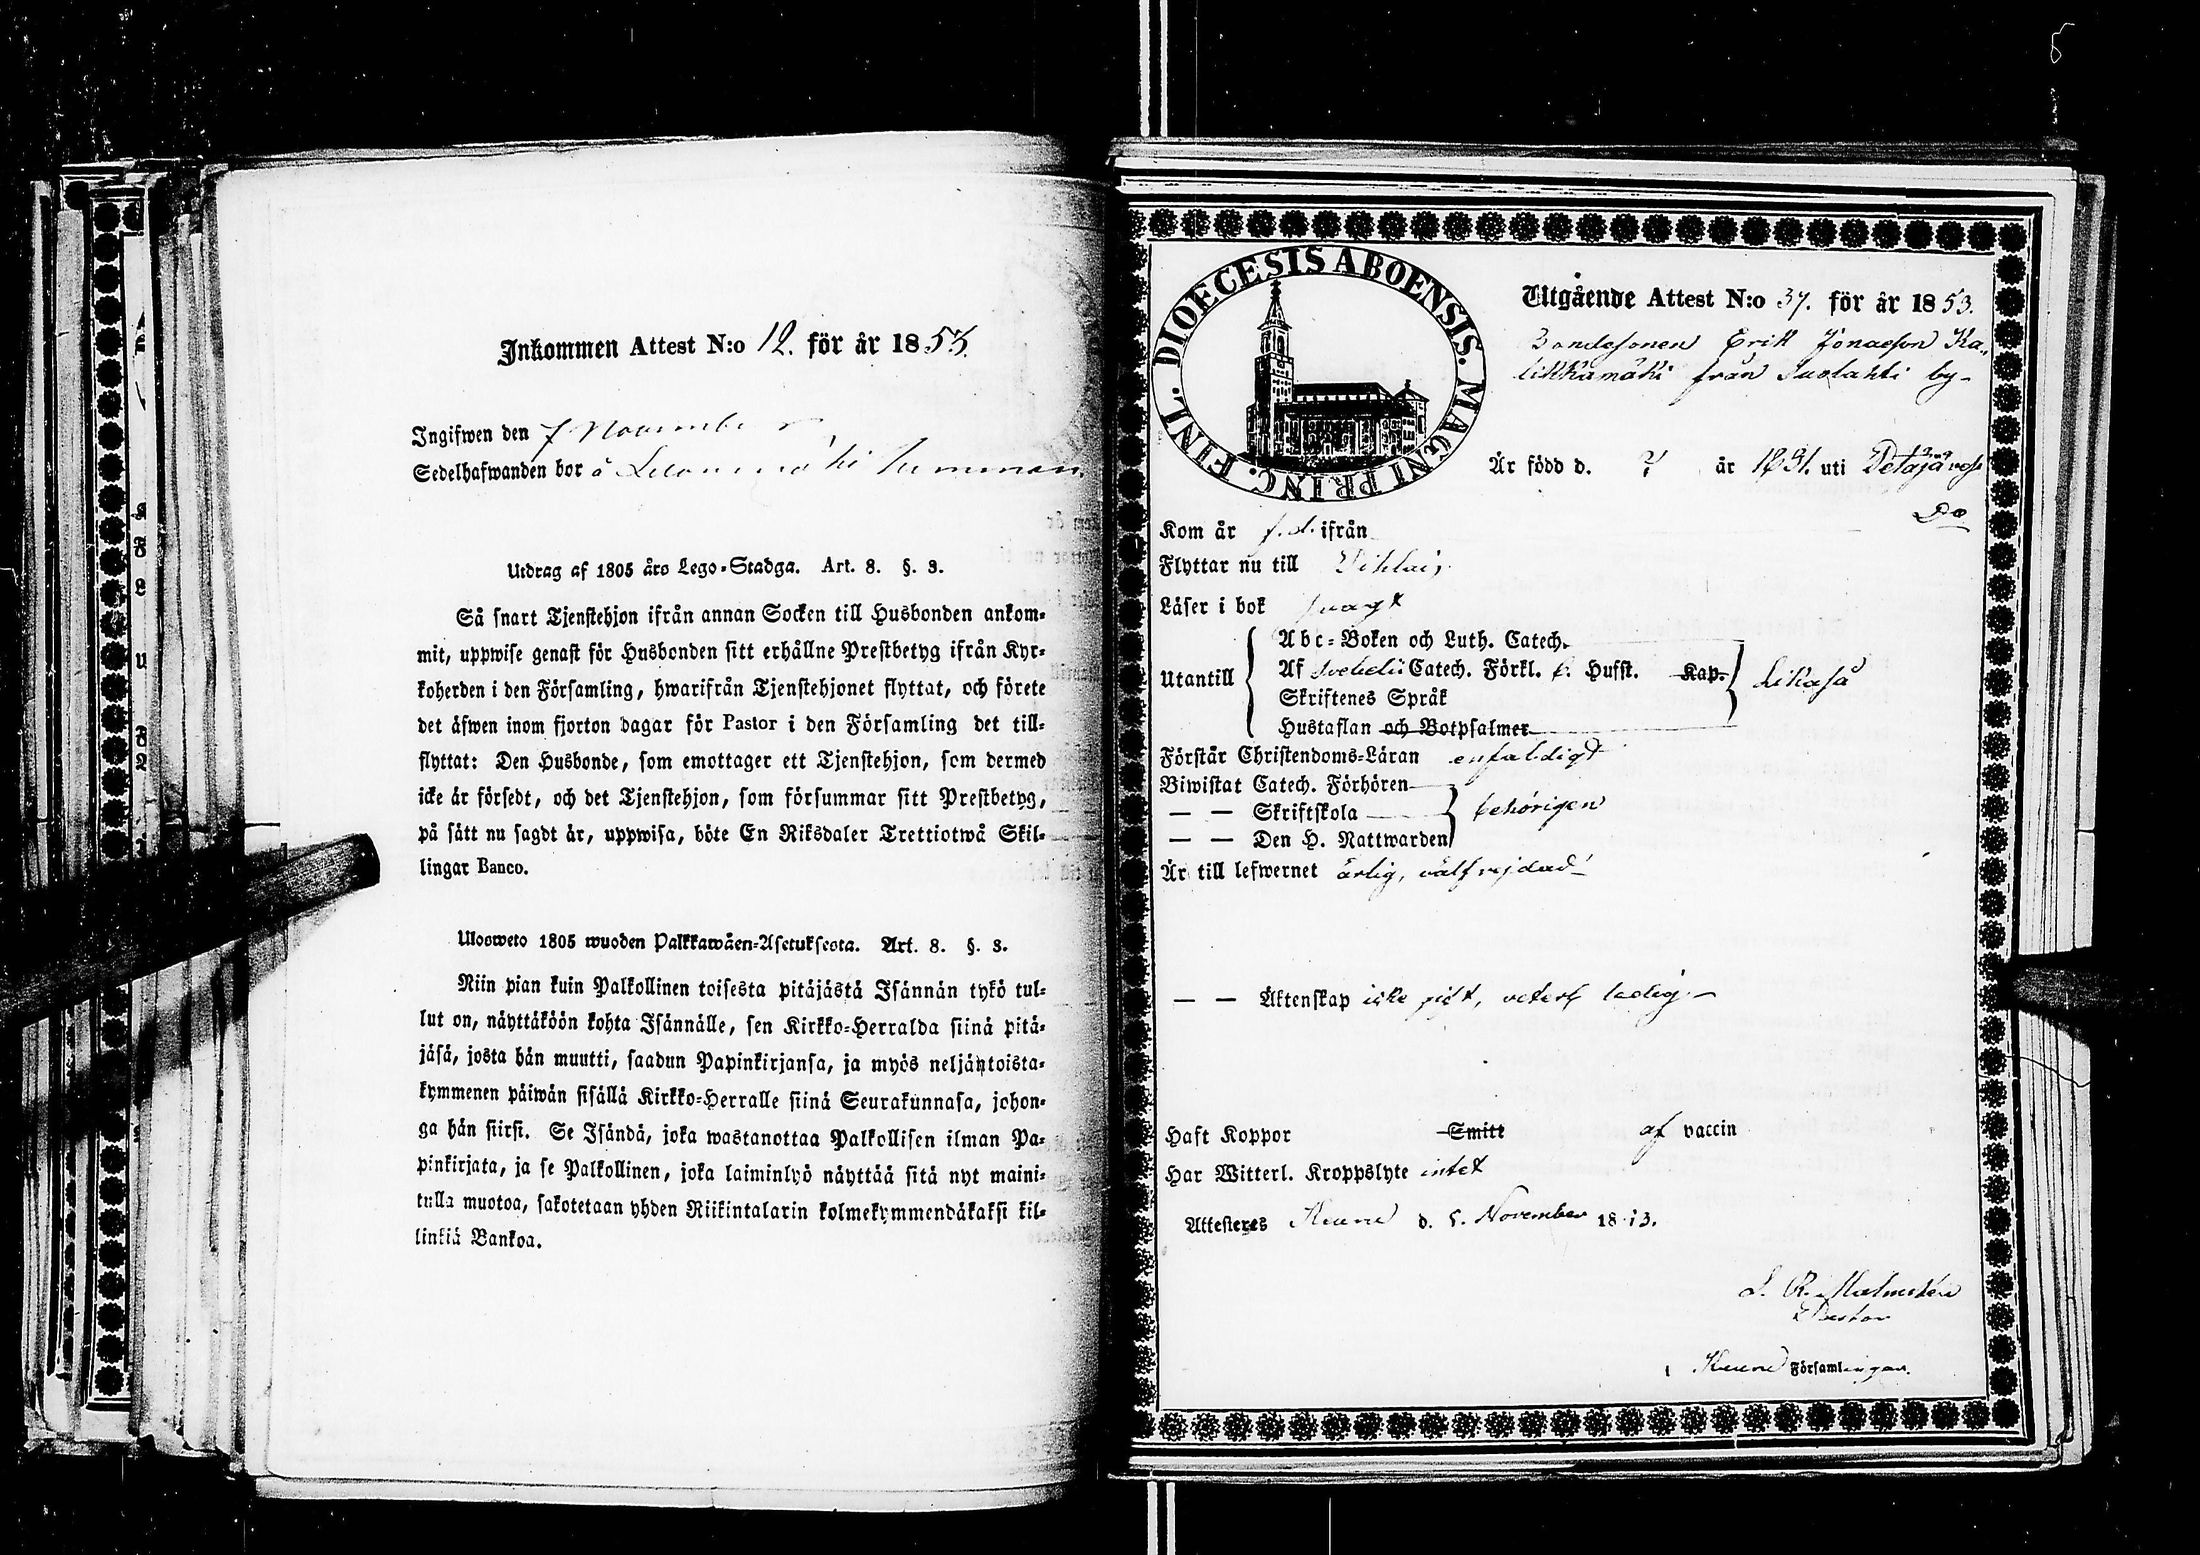 5
Inkommen Attest N:o 12. för år 1853.
Ingifwen den 7 November
Sedelhafwanden bor å
Utdrag af 1805 års Lego-Stadga. Art. 8. §. 3.
Så snart Tjenstehjon ifrån annan Socken till Husbonden ankom-
mit, uppwise genast för Husbonden sitt erhållne Prestbetyg ifrån Kyr-
koherden i den Församling, hwarifrån Tjenstehjonet flyttat, och förete
det äfwen inom fjorton dagar för Pastor i den Församling det till-
flyttat: Den Husbonde, som emottager ett Tjenstehjon, som dermed
icke är försedt, och det Tjenstehjon, som försummar sitt Prestbetyg,
på sätt nu sagdt är, uppwisa, böte En Riksdaler Trettiotwå Skil-
lingar Banco.
Ulosweto 1805 wuoden Palkkawäen-Asetuksesta. Art. 8. §. 3.
Niin pian kuin Palkollinen toisesta pitäjästä Isännän tykö tul-
lut on, näyttäköön kohta Isännälle, sen Kirkko-Herralda siinä pitä-
jäsä, josta hän muutti, saadun Papinkirjansa, ja myös neljäntoista-
kymmenen päiwän sisällä Kirkko-Herralle siinä Seurakunnasa, johon-
ga hän siirsi. Se Isändä, joka wastanottaa Palkollisen ilman Pa-
pinkirjata, ja se Palkollinen, joka laiminlyö näyttää sitä nyt maini-
tulla muotoa, sakotetaan yhden Riikintalarin kolmekymmendäkaksi kil-
linkiä Bankoa.
FINL. DIOECESIS ABOENSIS. MAGNI PRINC.
Utgående Attest N:o 37. för år 1853.
Bondesonen Erik Jonasson Ka-
likkamäki från Suolahti by-
Är född d. ? år 1831. uti
Do
Kom år f. d. ifrån
Flyttar nu till
Läser i bok svagt
Utantill
Abc-Boken och Luth. Catech.
Af Svebelii Catech. Förkl. 6. Hufst. Kap.
Likaså
Skriftenes Språk
Hustaflan och Botpsalmer
Förstår Christendoms-Läran enfaldigt
Biwistat Catech. Förhören
— — Skriftskola
behörigen
— — Den H. Nattwarden
Är till lefwernet ärlig, välfrejdad
— — Äktenskap icke gift, veterl. ledig.
Haft Koppor Smitt af vaccin
Har Witterl. Kroppslyte intet
Attesteres Keuru d. 5. November 1853.
Keuru Församlingar.